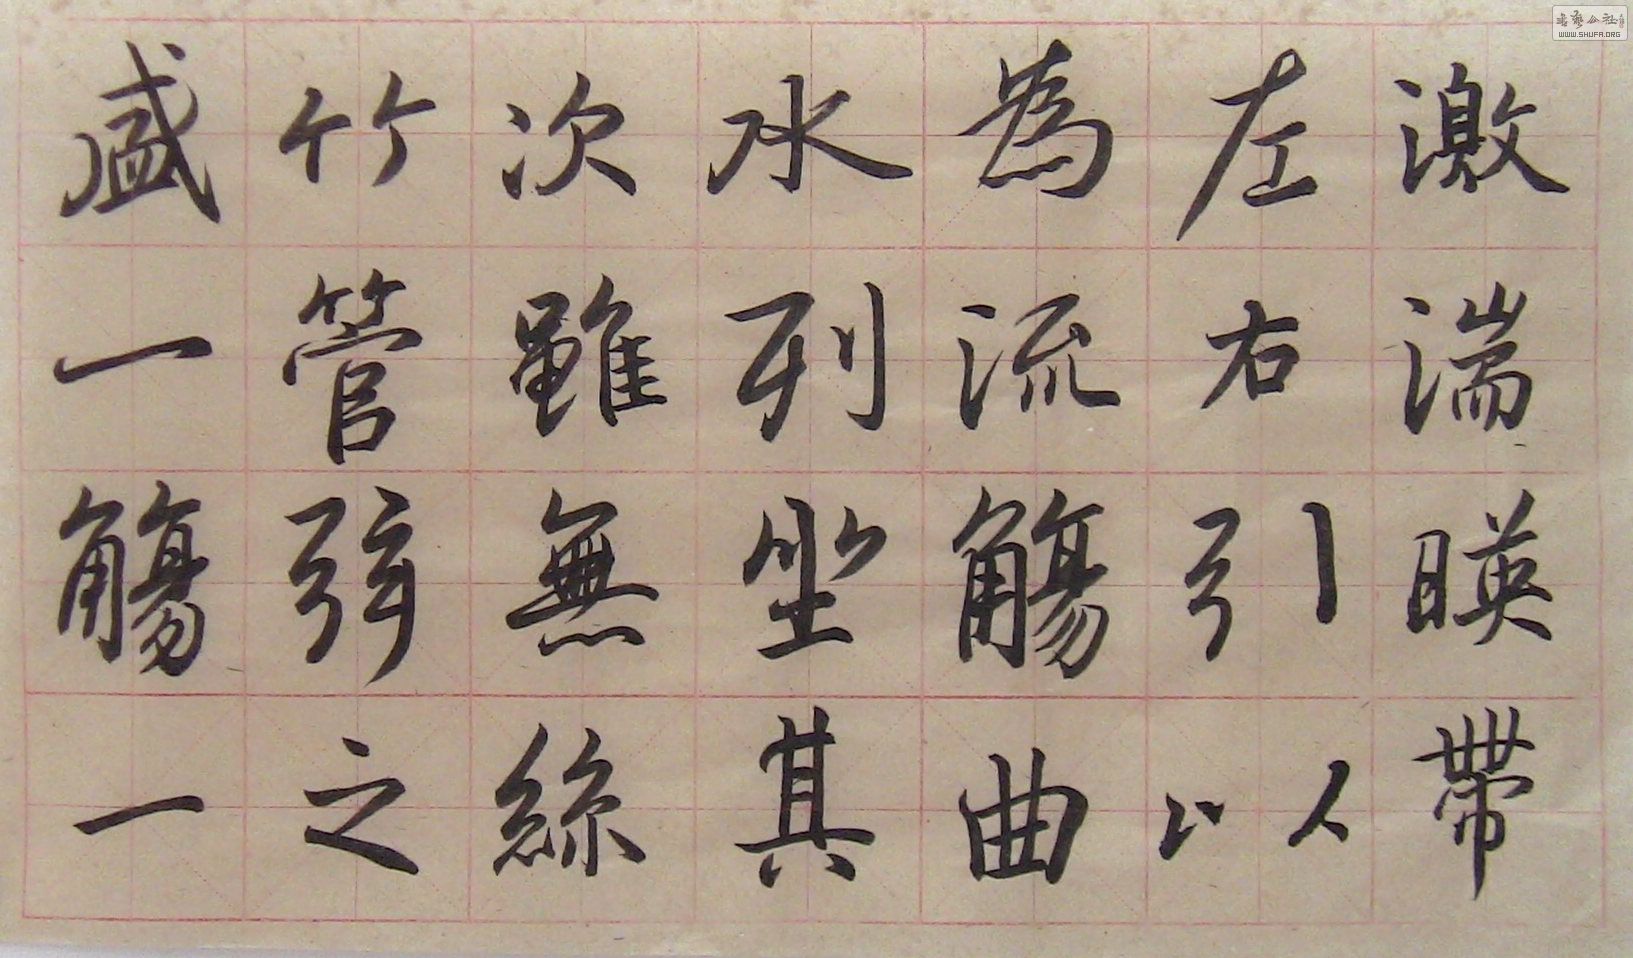 激湍暎帶
左右引以
為流觴曲
水列坐其
次雖無絲
竹管弦之
盛一觴一
WWW.SHUFA.ORG